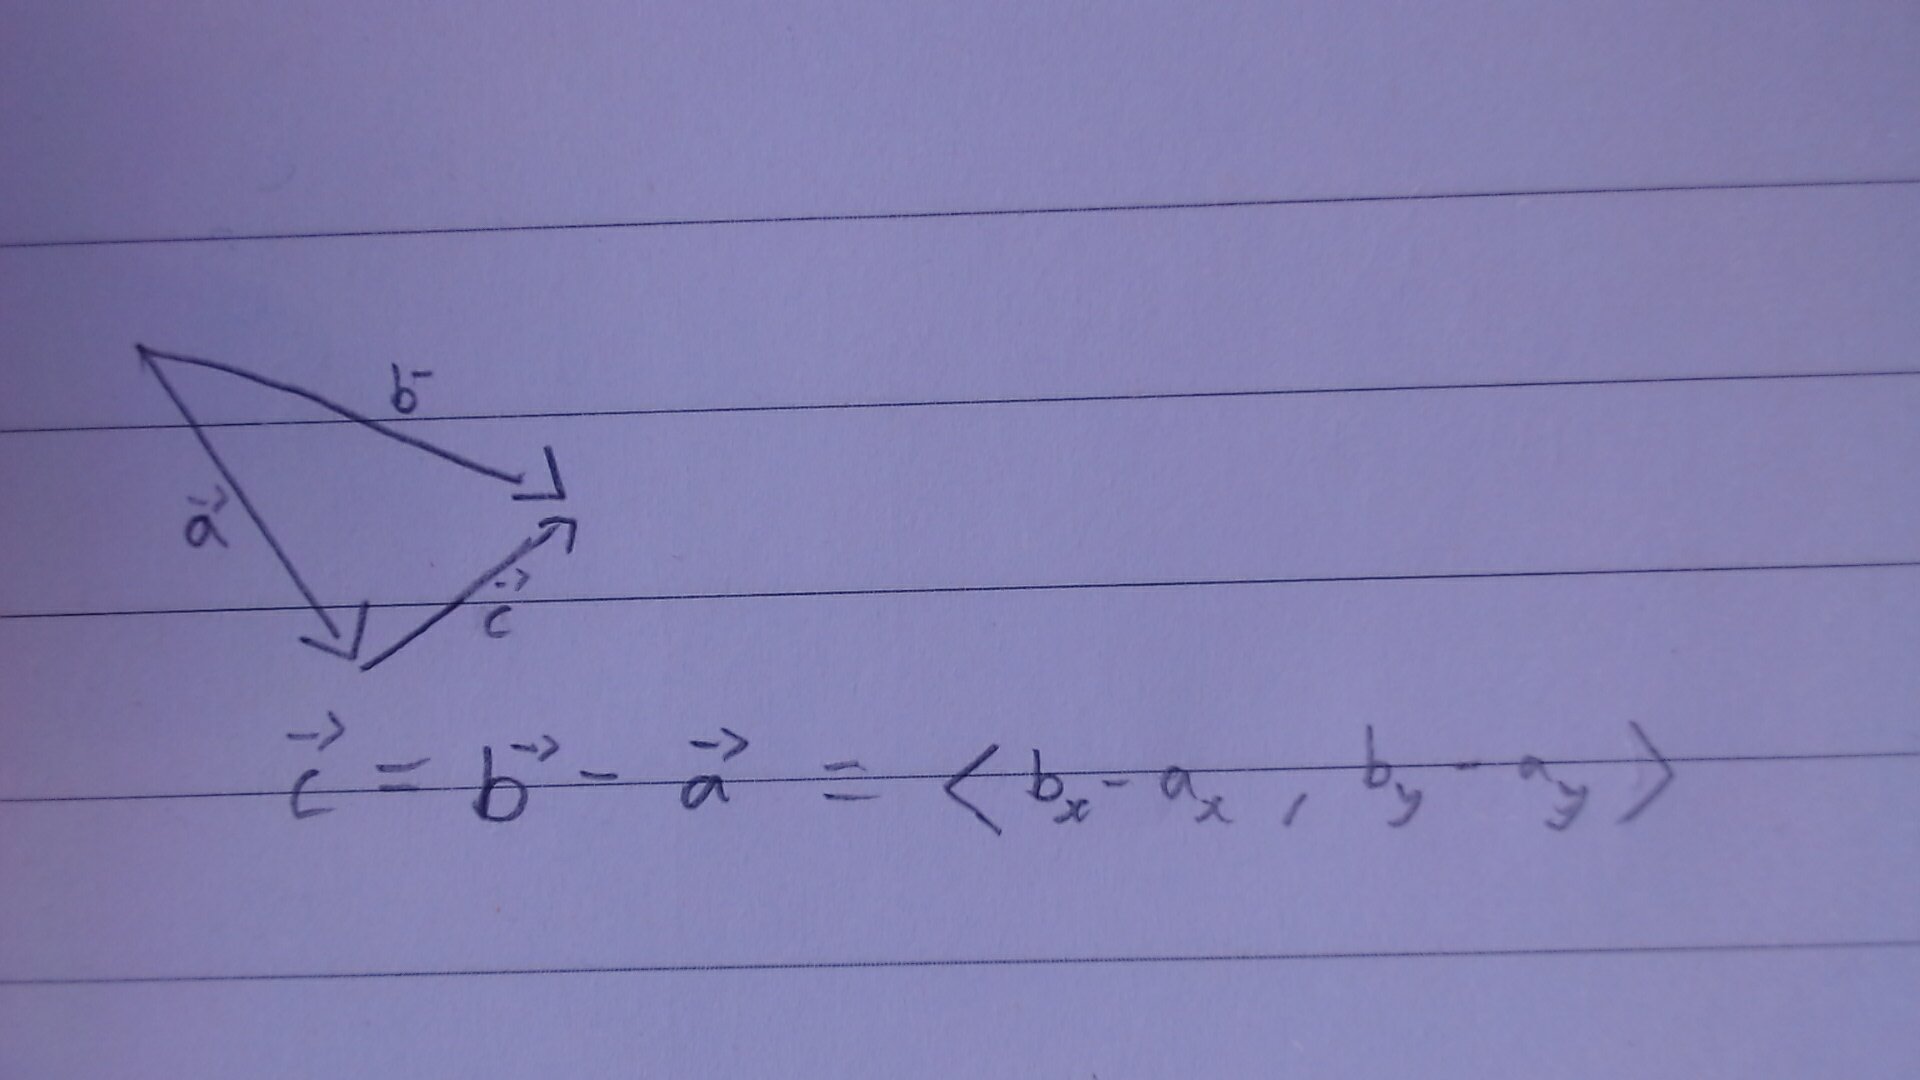 b⃗
a⃗
c⃗
c⃗ = b⃗ - a⃗ = < bₓ - aₓ , b_y - a_y >